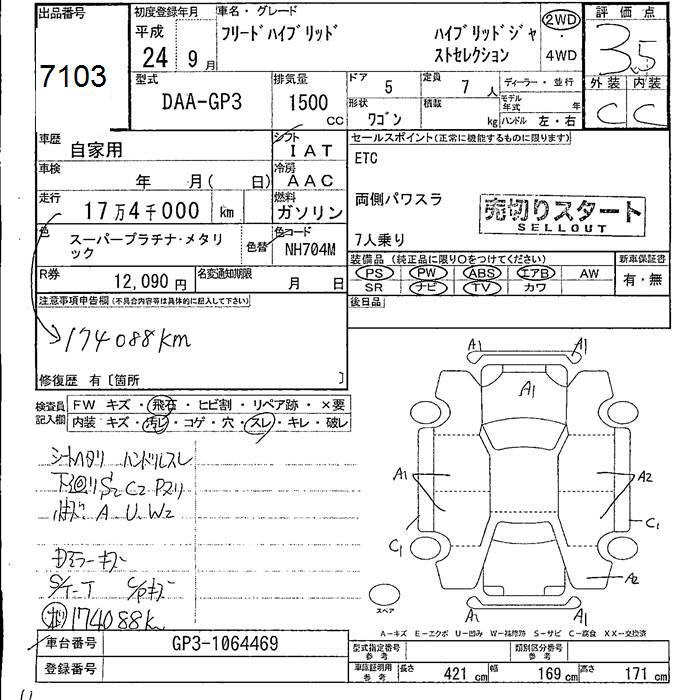 出品番号
7103
初度登録年月
平成
24年9月
車名・グレード
フリードハイブリッド ハイブリッドジャ
ストセレクション
2WD
・
4WD
評価点
3.5
外装 内装
C C
型式
DAA-GP3
排気量
1500
CC
ドア
5
定員
7人
ディーラー・並行
形状
ワゴン
積載
kg
モデル
年式
年
ハンドル 左・右
車歴
自家用
シフト
IAT
車検
年 月( 日)
冷房
AAC
走行
17万4千000 km
燃料
ガソリン
色
スーパープラチナ・メタリ
ック
色替
色コード
NH704M
R券
12,090円
名変通知期限
月 日
セールスポイント(正常に機能するものに限ります)
ETC
両側パワスラ
7人乗り
売切りスタート
SELLOUT
装備品(純正品に限り○をつけてください)
PS PW ABS エアB AW
SR ナビ TV カワ
新車保証書
有・無
後日品
注意事項申告欄(不具合内容等は具体的に記入して下さい)
174088km
修復歴 有〔箇所 〕
検査員
記入欄
FW キズ・飛石・ヒビ割・リペア跡・×要
内装 キズ・汚レ・コゲ・穴・スレ・キレ・破レ
シートヘタリ ハンドルスレ
下廻リS2 C2 Pヌリ
A U W2
174088k
A1 A1
A1
A1 A2
C1
C1
A2
A1
スペア
A-キズ E-エクボ U-凹み W-補修跡 S-サビ C-腐食 XX-交換済
車台番号
GP3-1064469
登録番号
型式指定番号
参考
類別区分番号
参考
車庫証明用
参考
長さ
421 cm
幅
169 cm
高さ
171 cm